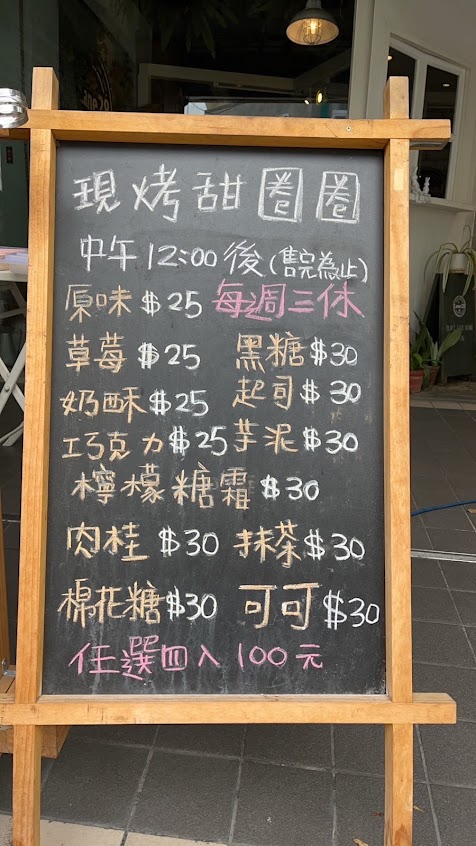 現烤甜圈圈
中午12:00後(售完為止)
原味$25 每週三休
草莓$25 黑糖$30
奶酥$25 起司$30
巧克力$25 芋泥$30
檸檬糖霜$30
肉桂$30 抹茶$30
棉花糖$30 可可$30
任選四入100元